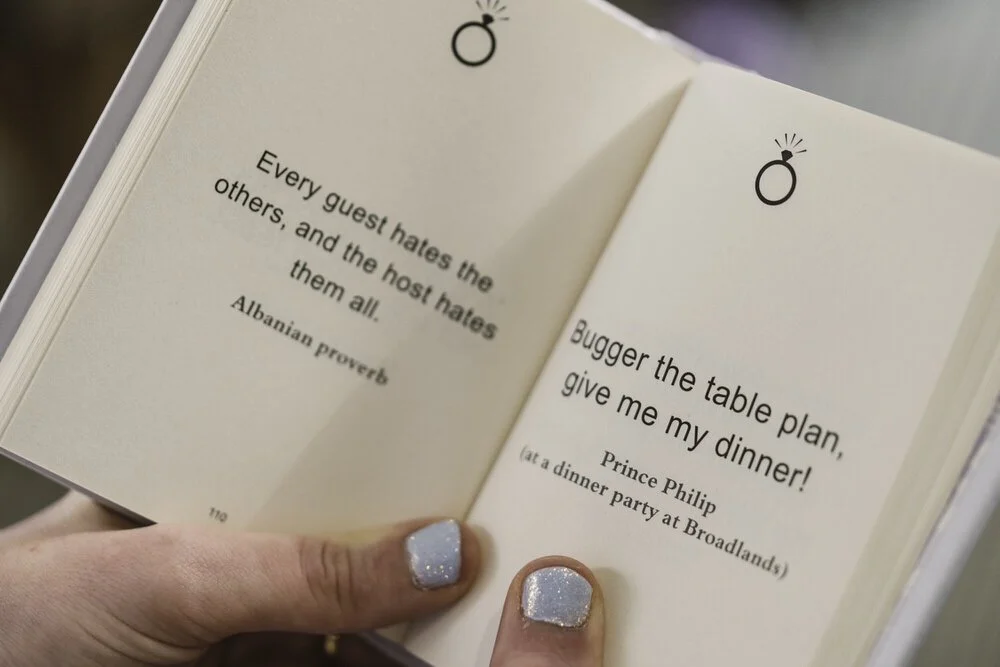 Every guest hates the
others, and the host hates
them all.
Albanian proverb
110
Bugger the table plan,
give me my dinner!
Prince Philip
(at a dinner party at Broadlands)